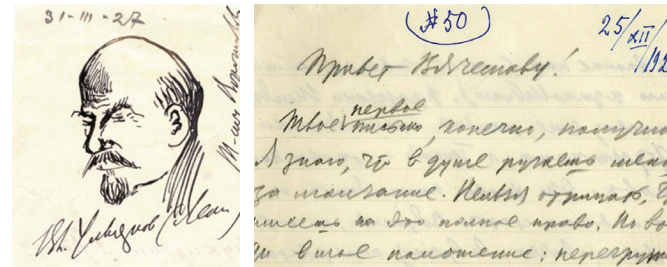 31-III-27
Вл. Ульянов (Ленин)
#50
25/XII/192
Привет Вячеславу!
первое
Твое письмо, конечно, получил
Я знаю, что в душе ругаешь меня
за молчание. Нельзя отрицать,
имеешь на это полное право. Но во
ди в мое положение: перегруж